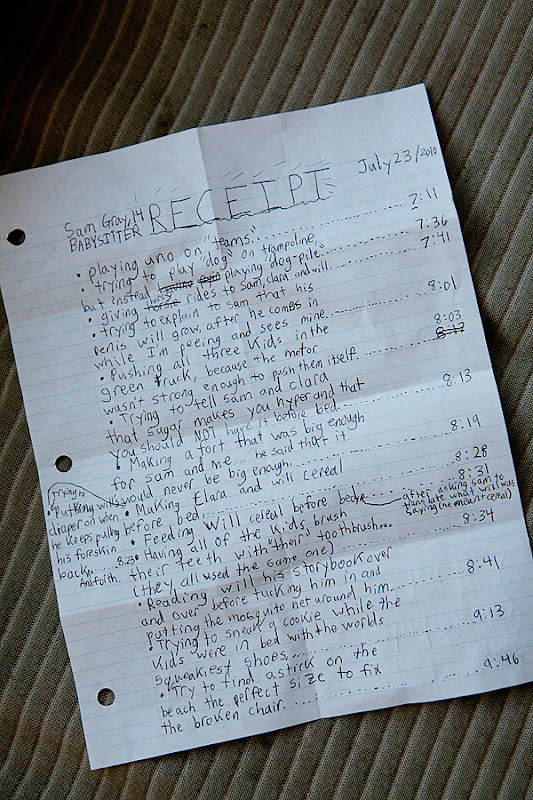 July 23/2010
Sam Gray, 14
BABYSITTER
RECEIPT
• playing uno on "teams." 7:11
• trying to play "dog" on trampoline,
but instead playing "dog-pile" 7:36
• giving horse rides to Sam, Clara and will 7:41
• trying to explain to sam that his
penis will grow, after he comes in
while I'm peeing and sees mine. 8:01
• Pushing all three Kids in the
green truck, because the motor
wasn't strong enough to push them itself. 8:03
8:12
• Trying to tell Sam and clara
that sugar makes you hyper and that
you should NOT have it before bed. 8:13
• Making a fort that was big enough
for sam and me... he said that it
would never be big enough. 8:19
trying to
• Putting will's
diaper on when
he keeps pulling
his foreskin
back.. 8:23
And forth.
• Making Clara and will cereal
before bed 8:28
• Feeding Will cereal before bed 8:31
after asking sam to
translate what will was
saying (he meant cereal)
• Having all of the kids brush
their teeth with "their" toothbrush...
(they all used the same one) 8:34
• Reading will his storybook over
and over before tucking him in and
putting the mosquito net around him. 8:41
• Trying to sneak a cookie while the
Kids were in bed with the worlds
squeakiest shoes. 9:13
• Try to find a stick on the
beach the perfect size to fix
the broken chair. 9:46